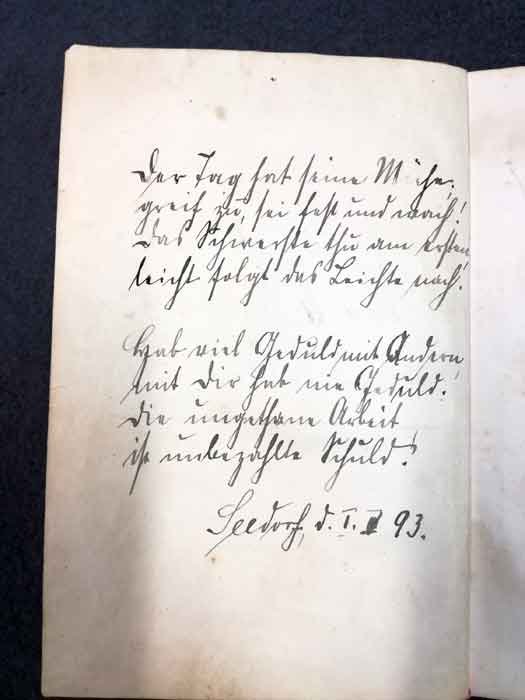 Der Tag hat seine Mühe,
greif zu, sei fest und wach!
Das Schwerste thu am ersten,
leicht folgt das Leichte nach.
Hab viel Geduld mit Andern,
mit Dir hab nie Geduld.
Die ungethane Arbeit
ist unbezahlte Schuld!
Seedorf, d. I. 93.